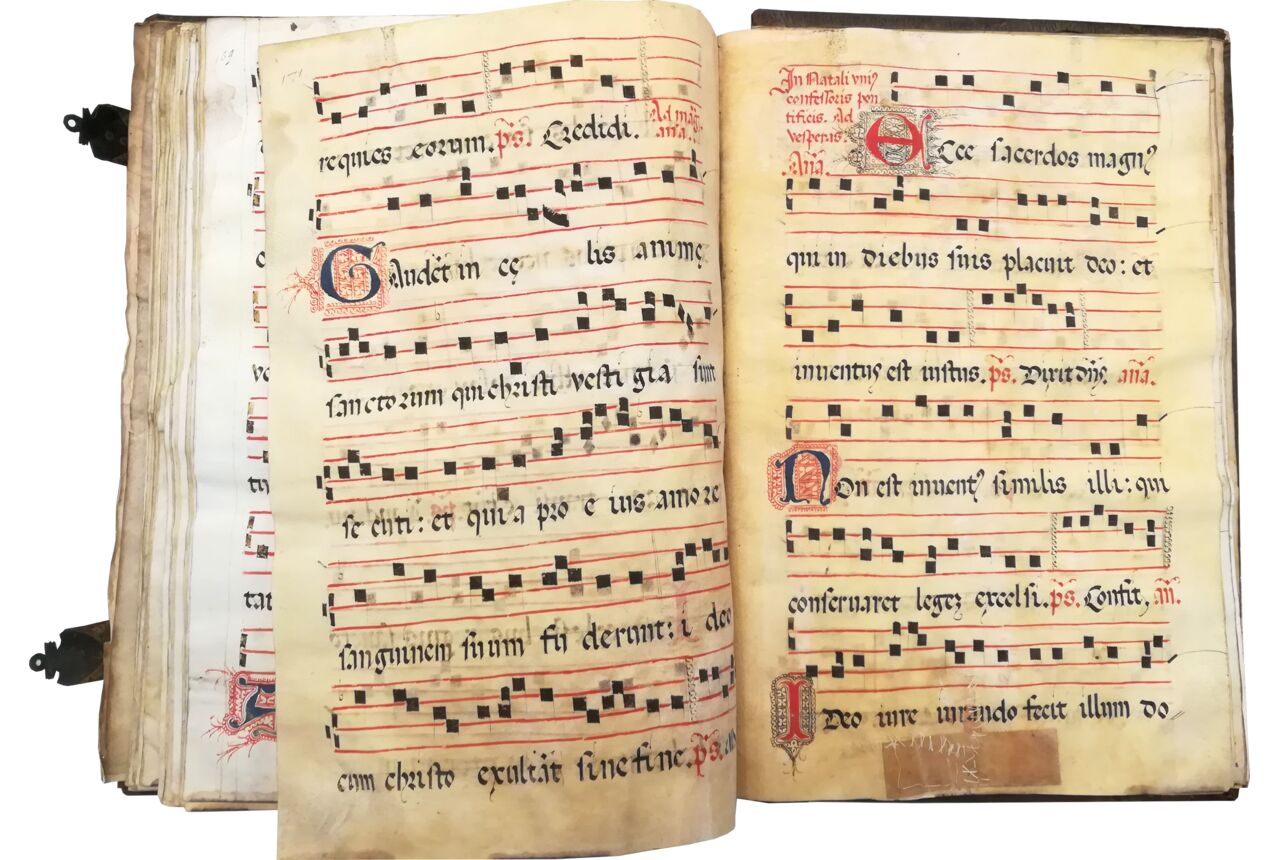 requies eorum. ps. Credidi. Ad mag. ana.
GAudēt in cę lis animę
sanctorum qui christi vesti gia sunt
se cuti: et qui a pro e ius amo re
sanguinem suum fu derunt: i deo
cum christo exultāt sine fine. ps.
In Natali vniꝰ
confessoris pon
tificis. Ad
vesperas.
Aña.
ECce sacerdos magnꝰ
qui in diebus suis placuit deo: et
inuentus est iustus. ps. Dixit dñs. aña.
NOn est inuentꝰ similis illi: qui
conseruaret legeꝫ excelsi. ps. Confit, añ.
IDeo iure iurando fecit illum do